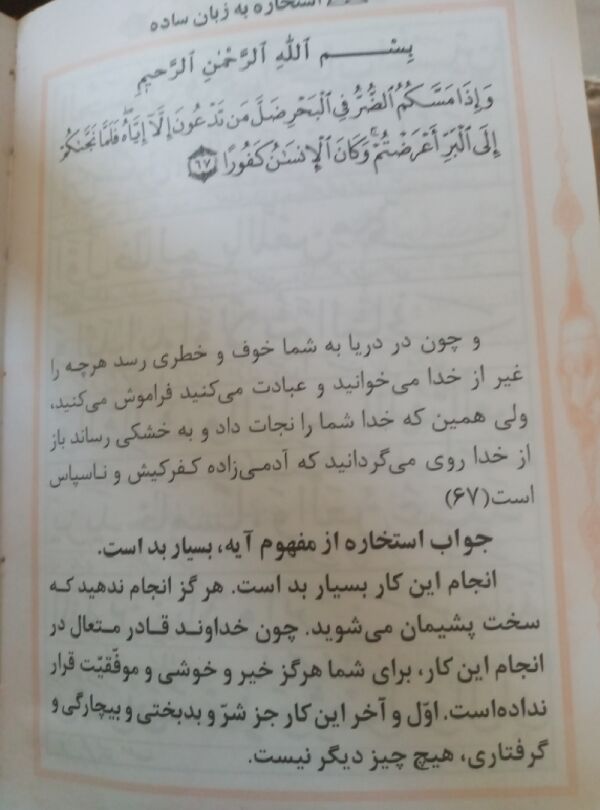 استخاره به زبان ساده
بِسْمِ ٱللَّهِ ٱلرَّحْمَٰنِ ٱلرَّحِيمِ
وَإِذَا مَسَّكُمُ ٱلضُّرُّ فِي ٱلْبَحْرِ ضَلَّ مَن تَدْعُونَ إِلَّآ إِيَّاهُۖ فَلَمَّا نَجَّىٰكُمْ
إِلَى ٱلْبَرِّ أَعْرَضْتُمْۚ وَكَانَ ٱلْإِنسَـٰنُ كَفُورًا ٦٧
و چون در دریا به شما خوف و خطری رسد هرچه را
غیر از خدا می‌خوانید و عبادت می‌کنید فراموش می‌کنید،
ولی همین که خدا شما را نجات داد و به خشکی رساند باز
از خدا روی می‌گردانید که آدمی‌زاده کفرکیش و ناسپاس
است(۶۷)
جواب استخاره از مفهوم آیه، بسیار بد است.
انجام این کار بسیار بد است. هرگز انجام ندهید که
سخت پشیمان می‌شوید. چون خداوند قادر متعال در
انجام این کار، برای شما هرگز خیر و خوشی و موفّقیّت قرار
نداده‌است. اوّل و آخر این کار جز شرّ و بدبختی و بیچارگی و
گرفتاری، هیچ چیز دیگر نیست.